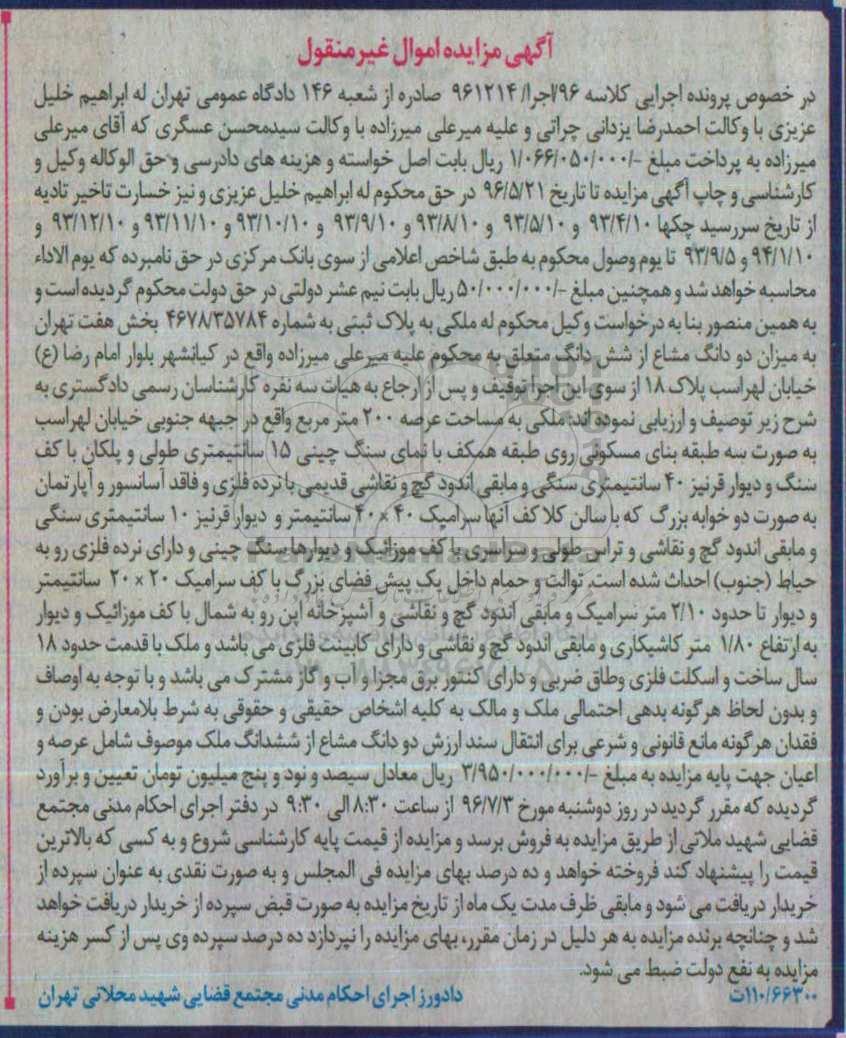 آگهی مزایده اموال غیر منقول
در خصوص پرونده اجرایی کلاسه ۹۶/اجرا/ ۹۶۱۲۱۴ صادره از شعبه ۱۴۶ دادگاه عمومی تهران له ابراهیم خلیل
عزیزی با وکالت احمدرضا یزدانی چراتی و علیه میرعلی میرزاده با وکالت سیدمحسن عسگری که آقای میرعلی
میرزاده به پرداخت مبلغ -/۱/۰۶۶/۰۵۰/۰۰۰ ریال بابت اصل خواسته و هزینه های دادرسی و حق الوکاله وکیل و
کارشناسی و چاپ آگهی مزایده تا تاریخ ۹۶/۵/۲۱ در حق محکوم له ابراهیم خلیل عزیزی و نیز خسارت تاخیر تادیه
از تاریخ سررسید چکها ۹۳/۴/۱۰ و ۹۳/۵/۱۰ و ۹۳/۸/۱۰ و ۹۳/۹/۱۰ و ۹۳/۱۰/۱۰ و ۹۳/۱۱/۱۰ و ۹۳/۱۲/۱۰ و
۹۴/۱/۱۰ و ۹۳/۹/۵ تا یوم وصول محکوم به طبق شاخص اعلامی از سوی بانک مرکزی در حق نامبرده که یوم الاداء
محاسبه خواهد شد و همچنین مبلغ -/۵۰/۰۰۰/۰۰۰ ریال بابت نیم عشر دولتی در حق دولت محکوم گردیده است و
به همین منصور بنا به درخواست وکیل محکوم له ملکی به پلاک ثبتی به شماره ۴۶۷۸/۳۵۷۸۴ بخش هفت تهران
به میزان دو دانگ مشاع از شش دانگ متعلق به محکوم علیه میرعلی میرزاده واقع در کیانشهر بلوار امام رضا (ع)
خیابان لهراسب پلاک ۱۸ از سوی این اجرا توقیف و پس از ارجاع به هیات سه نفره کارشناسان رسمی دادگستری به
شرح زیر توصیف و ارزیابی نموده اند: ملکی به مساحت عرصه ۲۰۰ متر مربع واقع در جبهه جنوبی خیابان لهراسب
به صورت سه طبقه بنای مسکونی روی طبقه همکف با نمای سنگ چینی ۱۵ سانتیمتری طولی و پلکان با کف
سنگ و دیوار قرنیز ۴۰ سانتیمتری سنگی و مابقی اندود گچ و نقاشی قدیمی با نرده فلزی و فاقد آسانسور و آپارتمان
به صورت دو خوابه بزرگ که با سالن کلا کف آنها سرامیک ۴۰ × ۴۰ سانتیمتر و دیوار قرنیز ۱۰ سانتیمتری سنگی
و مابقی اندود گچ و نقاشی و تراس طولی و سراسری با کف موزائیک و دیوارها سنگ چینی و دارای نرده فلزی رو به
حیاط (جنوب) احداث شده است. توالت و حمام داخل یک پیش فضای بزرگ با کف سرامیک ۲۰ × ۲۰ سانتیمتر
و دیوار تا حدود ۲/۱۰ متر سرامیک و مابقی اندود گچ و نقاشی و آشپزخانه اپن رو به شمال با کف موزائیک و دیوار
به ارتفاع ۱/۸۰ متر کاشیکاری و مابقی اندود گچ و نقاشی و دارای کابینت فلزی می باشد و ملک با قدمت حدود ۱۸
سال ساخت و اسکلت فلزی وطاق ضربی و دارای کنتور برق مجزا و آب و گاز مشترک می باشد و با توجه به اوصاف
و بدون لحاظ هرگونه بدهی احتمالی ملک و مالک به کلیه اشخاص حقیقی و حقوقی به شرط بلامعارض بودن و
فقدان هرگونه مانع قانونی و شرعی برای انتقال سند ارزش دو دانگ مشاع از ششدانگ ملک موصوف شامل عرصه و
اعیان جهت پایه مزایده به مبلغ -/۳/۹۵۰/۰۰۰/۰۰۰ ریال معادل سیصد و نود و پنج میلیون تومان تعیین و برآورد
گردیده که مقرر گردید در روز دوشنبه مورخ ۹۶/۷/۳ از ساعت ۸:۳۰ الی ۹:۳۰ در دفتر اجرای احکام مدنی مجتمع
قضایی شهید ملاتی از طریق مزایده به فروش برسد و مزایده از قیمت پایه کارشناسی شروع و به کسی که بالاترین
قیمت را پیشنهاد کند فروخته خواهد و ده درصد بهای مزایده فی المجلس و به صورت نقدی به عنوان سپرده از
خریدار دریافت می شود و مابقی ظرف مدت یک ماه از تاریخ مزایده به صورت قبض سپرده از خریدار دریافت خواهد
شد و چنانچه برنده مزایده به هر دلیل در زمان مقرر، بهای مزایده را نپردازد ده درصد سپرده وی پس از کسر هزینه
مزایده به نفع دولت ضبط می شود.
۱۱۰/۶۶۳۰۰ت
دادورز اجرای احکام مدنی مجتمع قضایی شهید محلاتی تهران